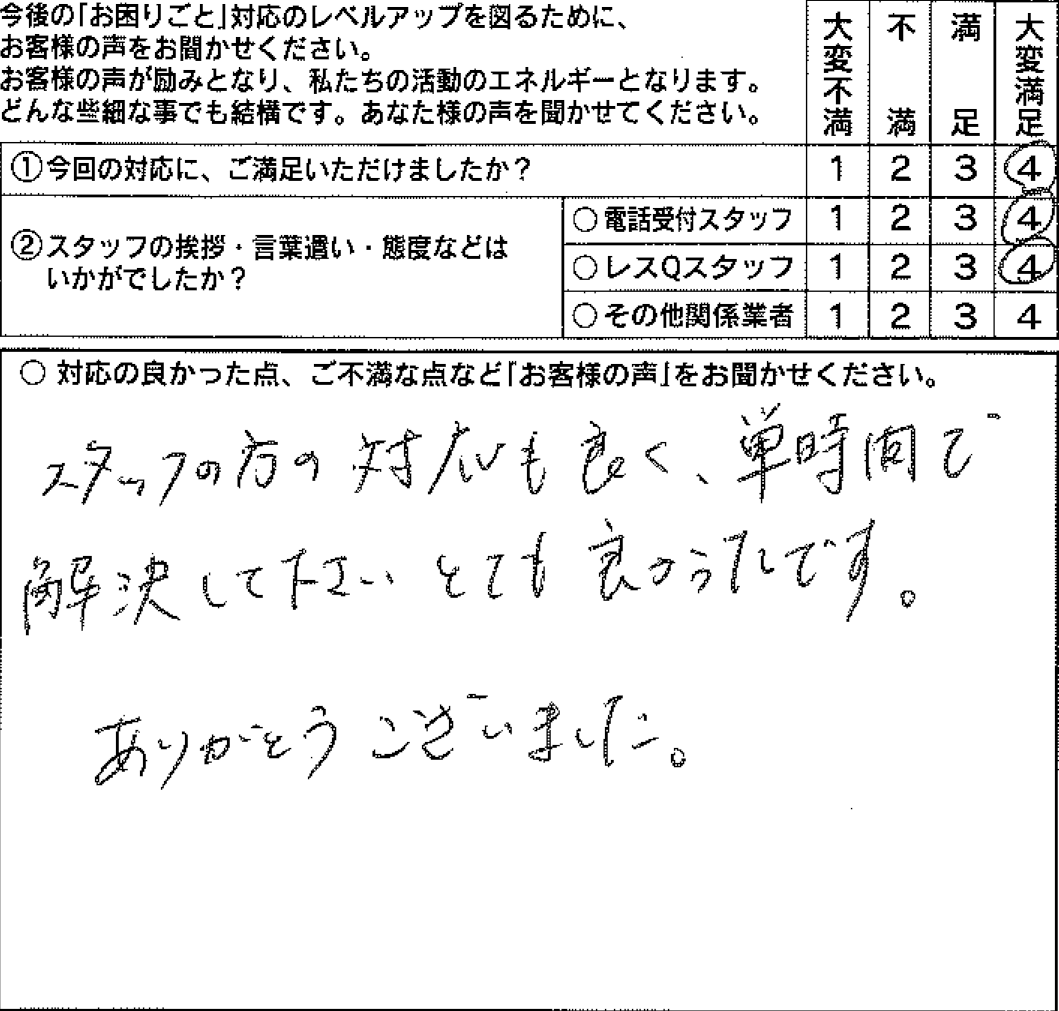 今後の「お困りごと」対応のレベルアップを図るために、
お客様の声をお聞かせください。
お客様の声が励みとなり、私たちの活動のエネルギーとなります。
どんな些細な事でも結構です。あなた様の声を聞かせてください。
大変不満 不満 満足 大変満足
①今回の対応に、ご満足いただけましたか？ 1 2 3 4
②スタッフの挨拶・言葉遣い・態度などは
いかがでしたか？
○電話受付スタッフ 1 2 3 4
○レスQスタッフ 1 2 3 4
○その他関係業者 1 2 3 4
○ 対応の良かった点、ご不満な点など「お客様の声」をお聞かせください。
スタッフの方の対応も良く、単時間で
解決して下さいとても良かったです。
ありがとうございました。